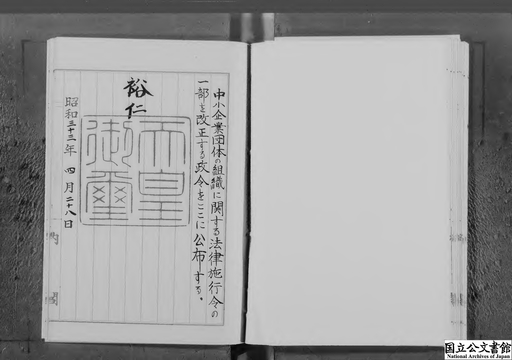 中小企業団体の組織に関する法律施行令の
一部を改正する政令をここに公布する。
裕仁
天皇
御璽
昭和三十三年四月二十八日
国立公文書館
National Archives of Japan